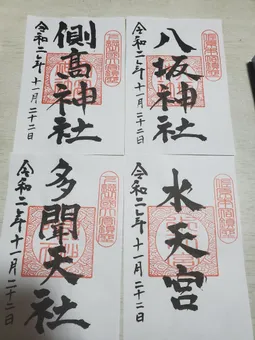 八坂神社
令和二年十一月二十二日
側高神社
令和二年十一月二十二日
水天宮
令和二年十一月二十二日
多聞天社
令和二年十一月二十二日